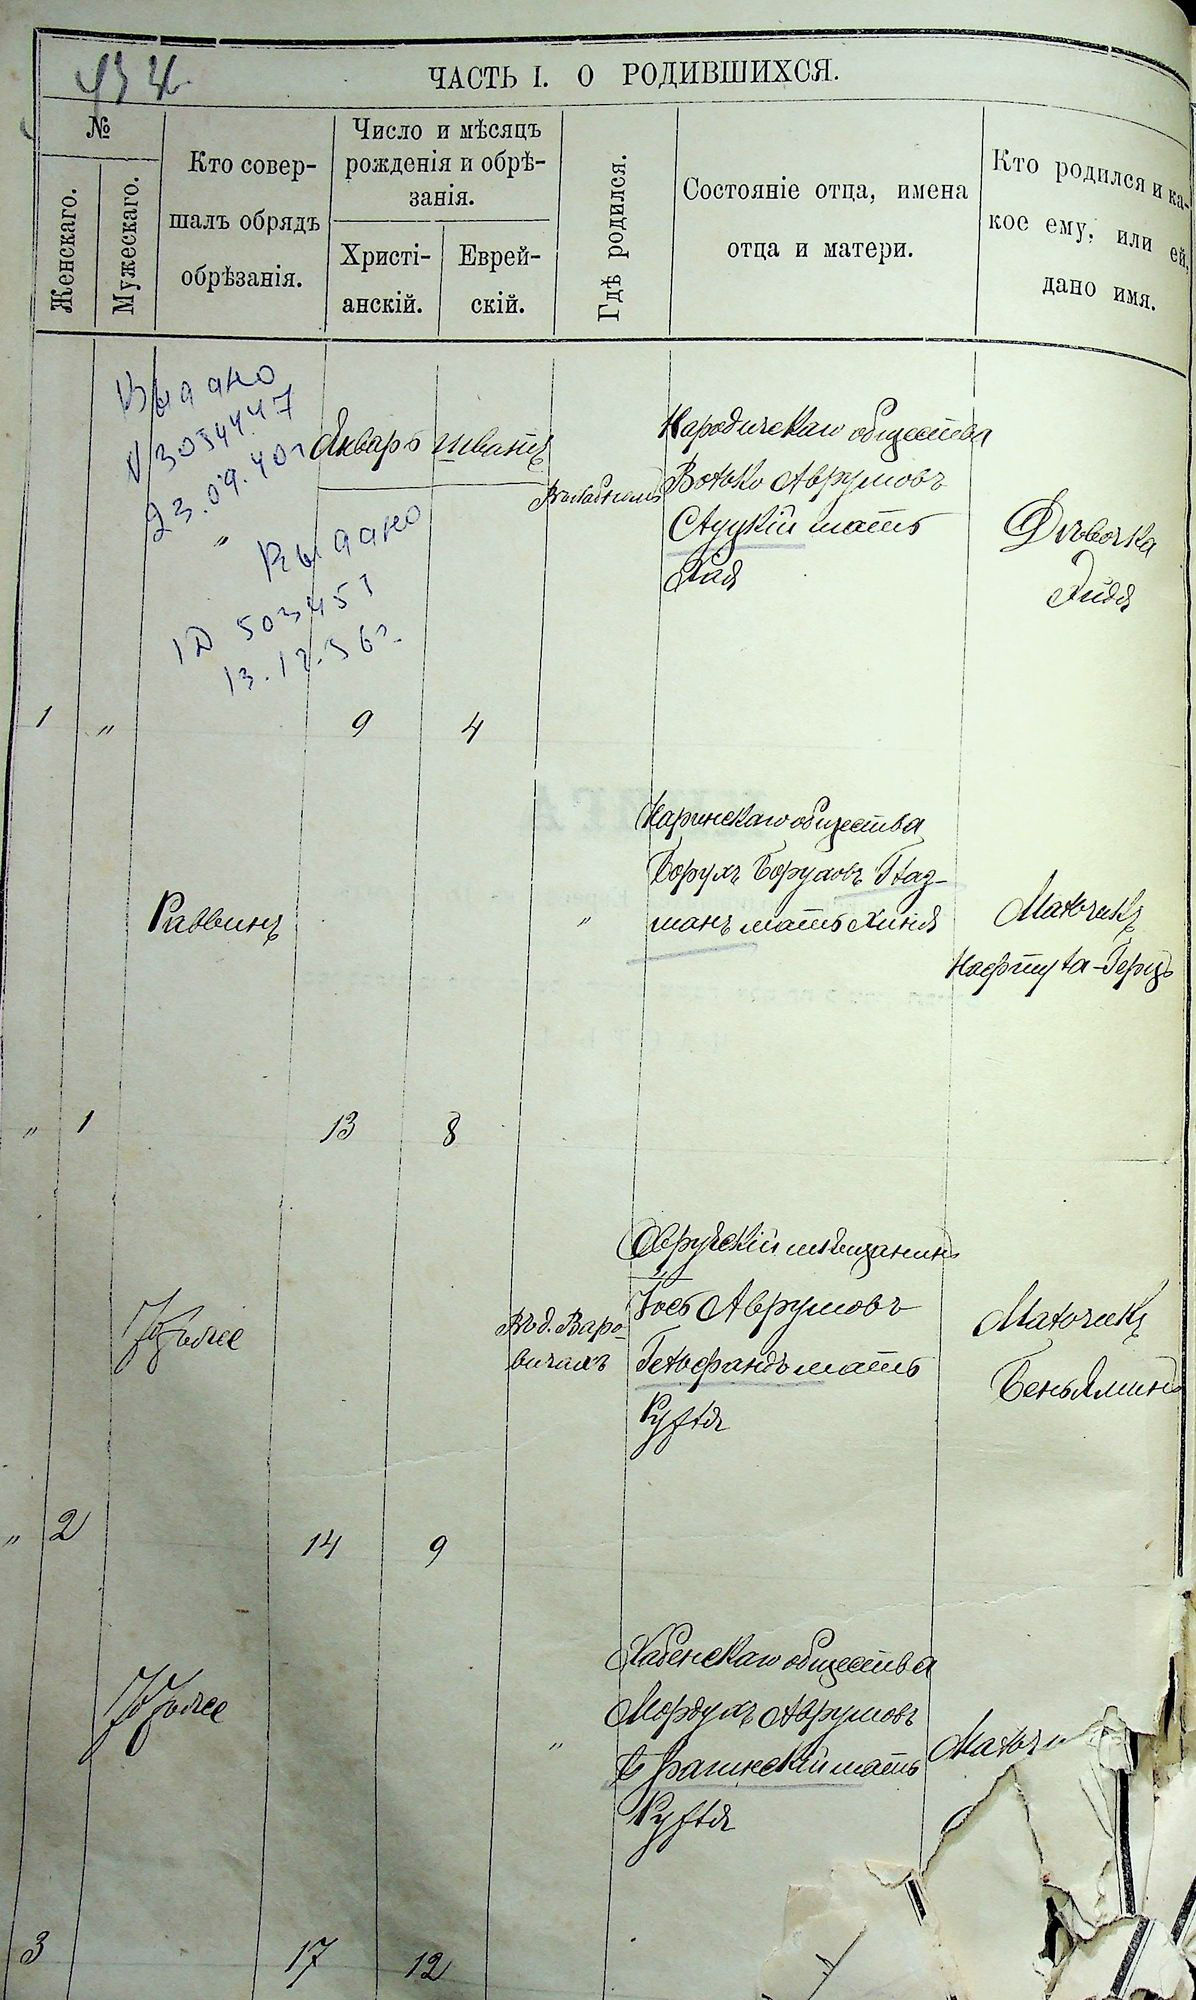 434
ЧАСТЬ I. О РОДИВШИХСЯ.
№
Женскаго.
Мужескаго.
Кто совер-
шалъ обрядъ
обрѣзанія.
Число и мѣсяцъ
рожденія и обрѣ-
занія.
Христі-
анскій.
Еврей-
скій.
Гдѣ родился.
Состояніе отца, имена
отца и матери.
Кто родился и ка-
кое ему, или ей,
дано имя.
Выдано
23.09.40г
Выдано
503451
13.12.56г.
Январь
Шватъ
Народичскаго общества
Волько Аврумовъ
Слуцкій мать
Хая
Дѣвочка
Эйдя
1
"
9
4
Раввинъ
"
Наринскаго общества
Борухъ Боруховъ Глаз-
манъ мать Хиня
Мальчикъ
Нафтула-Герцъ
"
1
13
8
Въ д. Варо-
вичахъ
Овручскій мѣщанинъ
Іось Аврумовъ
Гельфандъ мать
Рухля
Мальчикъ
Беньяминъ
"
2
14
9
"
Хабенскаго общества
Мордухъ Аврумовъ
Брагинскій мать
Рухля
Мальчи
3
17
12